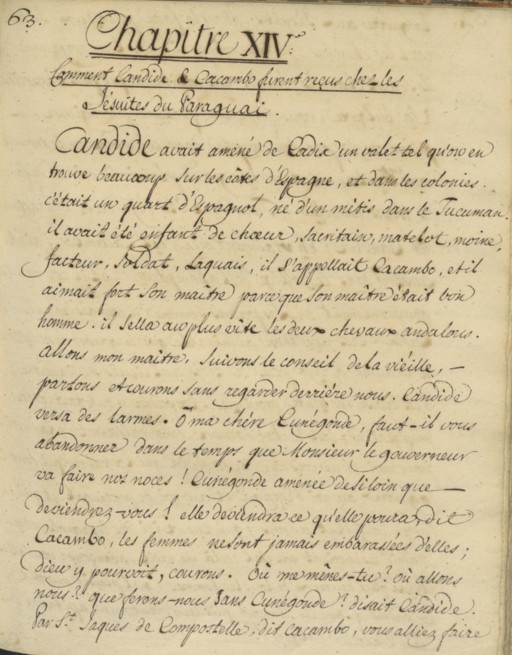 63.
Chapître XIV.
Comment Candide & Cacambo furent reçus chez les
Jésuites du Paraguai.
Candide avait amené de Cadix un valet tel qu'on en
trouve beaucoup sur les côtes d'Espagne, et dans les colonies.
c'était un quart d'Espagnol, né d'un métis dans le Tucuman.
il avait été enfant de chœur, sacristain, matelot, moine,
facteur, soldat, laquais, il s'appellait Cacambo, et il
aimait fort son maître parce que son maître était bon
homme. il sella au plus vite les deux chevaux andalous.
allons mon maître, suivons le conseil de la vieille, –
partons et courons sans regarder derriére nous. Candide
versa des larmes. Ô ma chére Cunégonde, faut-il vous
abandonner dans le temps que Monsieur le gouverneur
va faire noz noces! Cunégonde amenée de si loin que –
deviendrez-vous! elle deviendra ce qu'elle poura, dit
Cacambo, les femmes ne sont jamais embarassées d'elles;
dieu y pourvoit, courons. Où me mênes-tu? où allons
nous? que ferons-nous sans Cunégonde? disait Candide.
Par St. Jaques de Compostelle, dit Cacambo, vous alliez faire